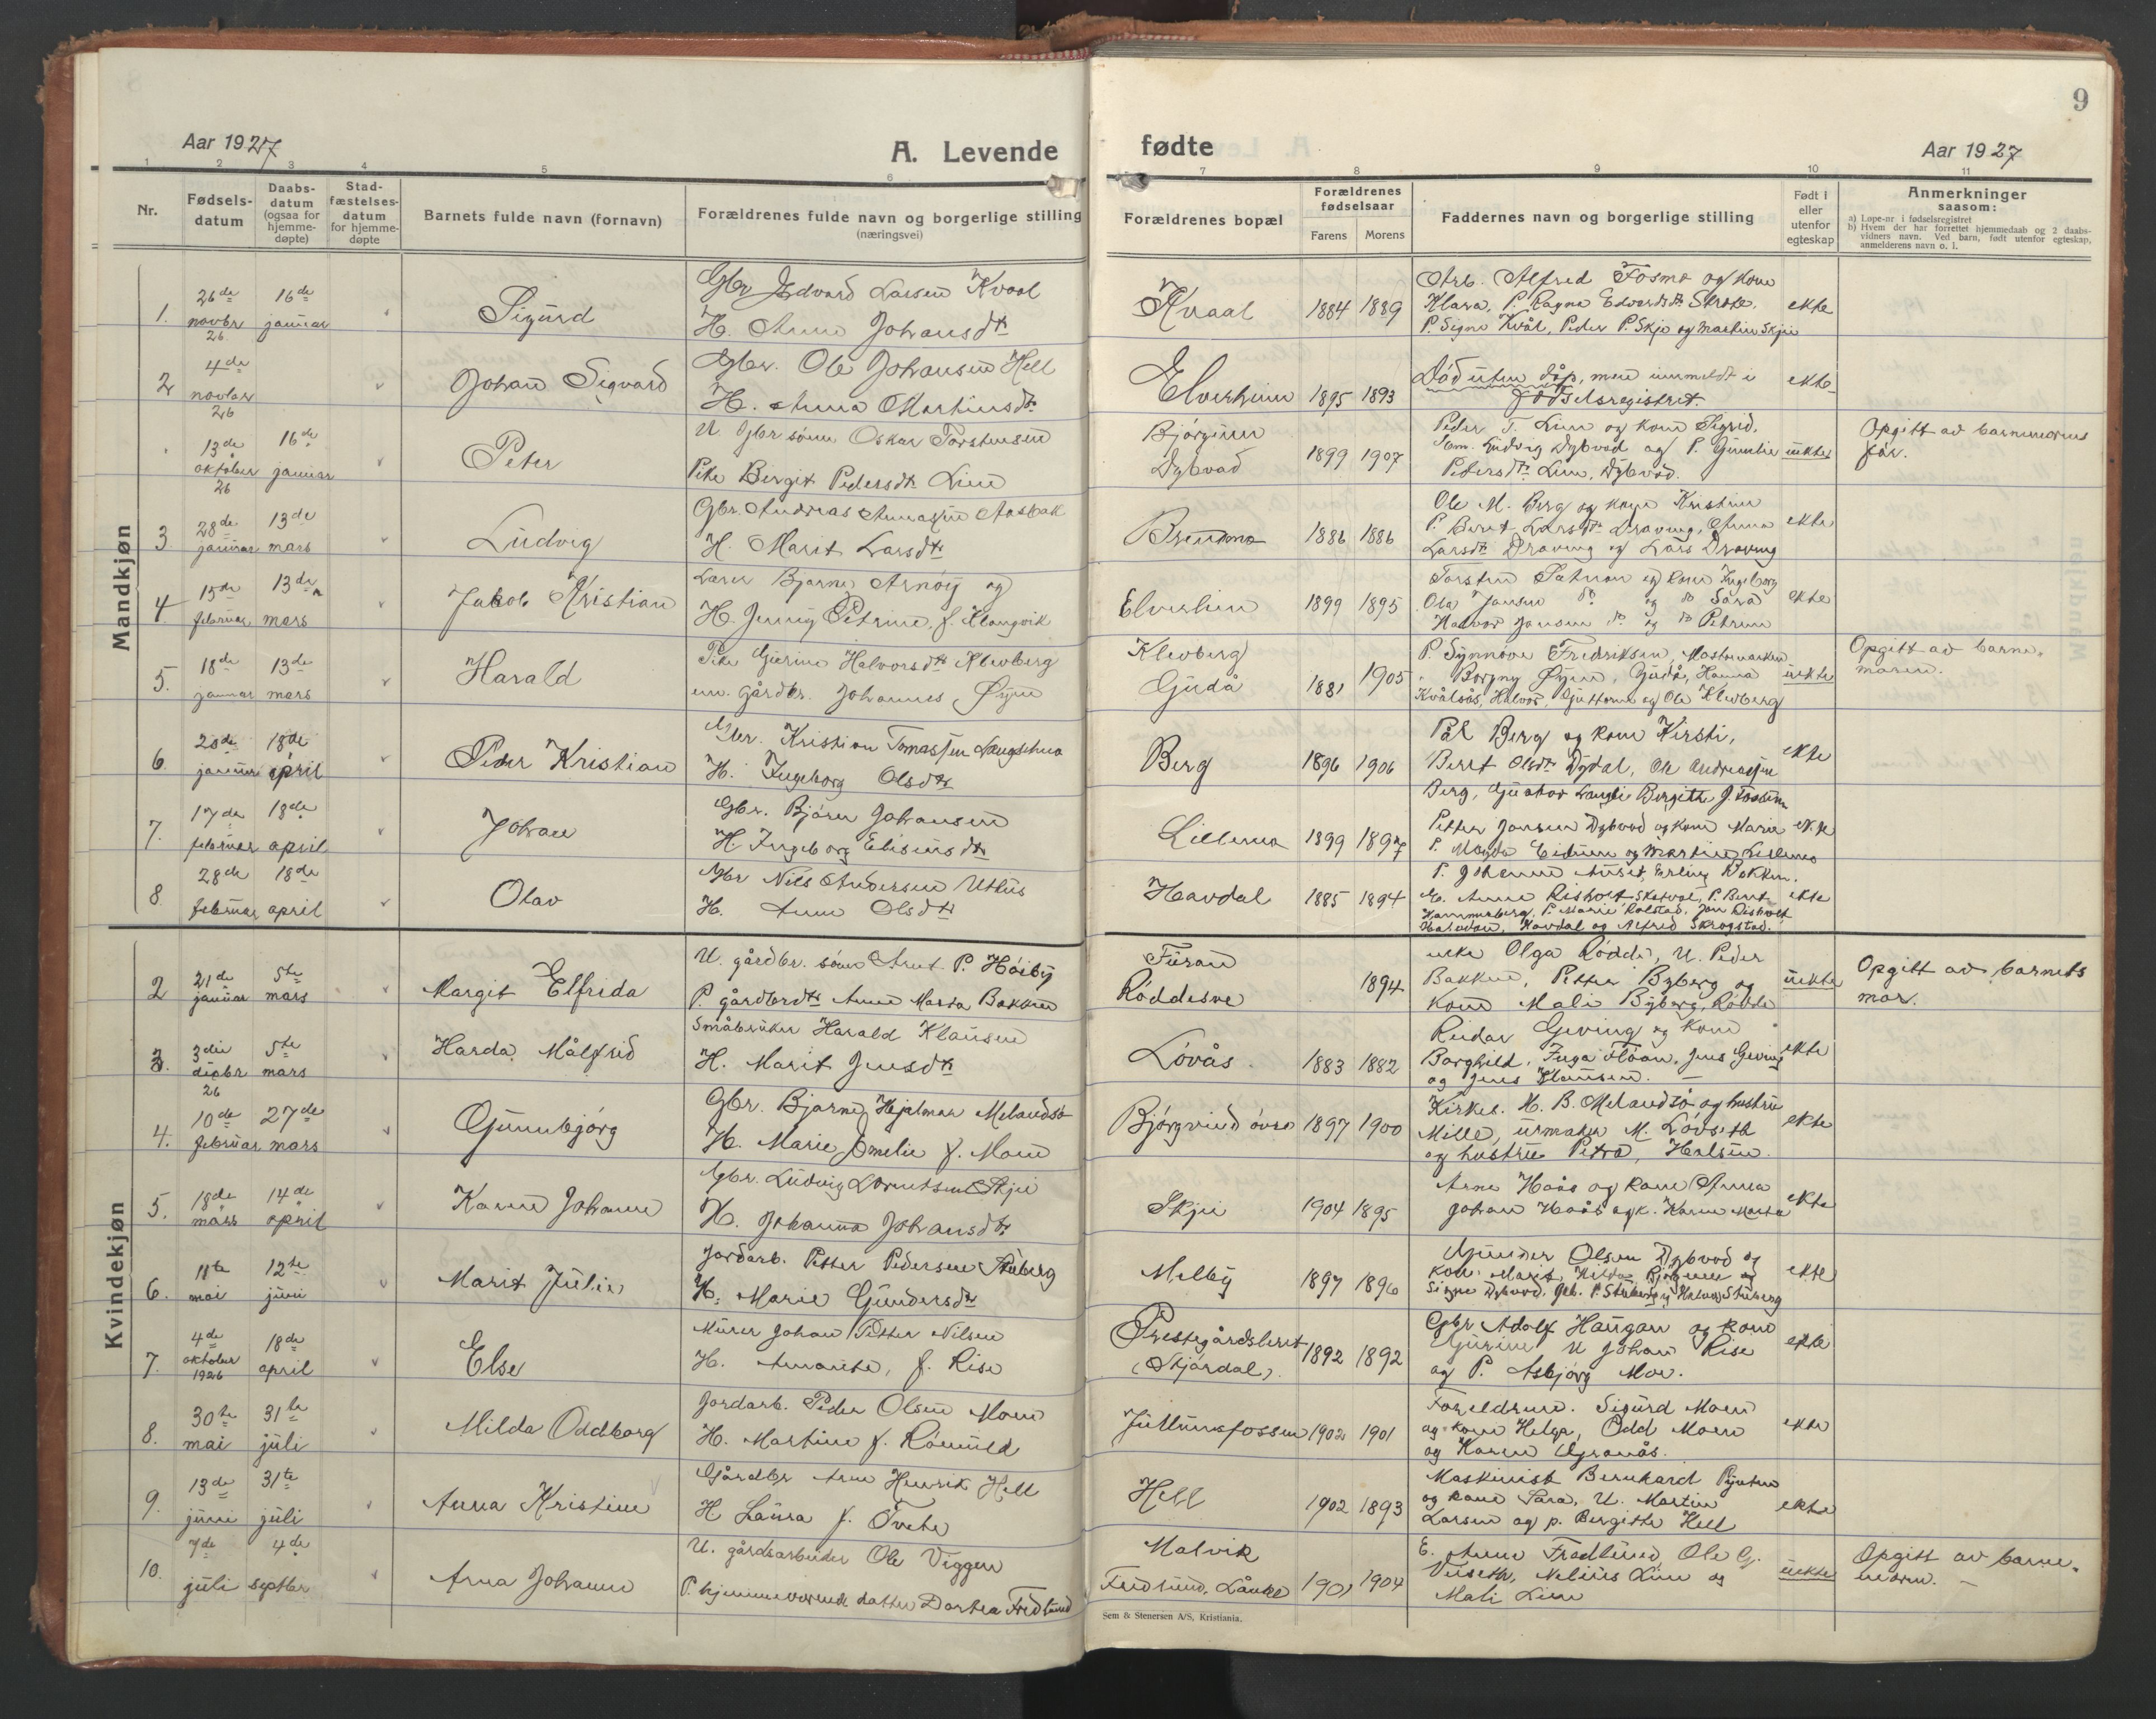 9
Aar 1927
A. Levende
fødte
Aar 1927
1 2 3 4 5 6 7 8 9 10 11
Nr.
Fødsels-
datum
Daabs-
datum
(ogsaa for
hjemme-
døpte)
Stad-
fæstelses-
datum
for hjemme-
døpte
Barnets fulde navn (fornavn)
Forældrenes fulde navn og borgerlige stilling
(næringsvei)
Forældrenes bopæl
Forældrenes
fødselsaar
Farens Morens
Faddernes navn og borgerlige stilling
Født i
eller
utenfor
egteskap
Anmerkninger
saasom:
a) Løpe-nr i fødselsregistret
b) Hvem der har forrettet hjemmedaab og 2 daabs-
vidners navn. Ved barn, født utenfor egteskap,
anmelderens navn o. l.
Mandkjøn
1. 26de novbr 26 16de januar
Sigurd
Gbr Edvard Larsen Kvaal
H. Anna Johansdtr
Kvaal 1884 1889
Arb. Alfred Fosmo og kone
Klara, P. Ragna Edvardsdtr
P. Signe Kvål, Peder P. Skje og Martin Skjei
ekte
2 4de novbr 26
Johan Sigvard
Gbr. Ole Johansen Hell
H. Anna Martinsdtr
Elverheim 1895 1893
Død uten dåp, men innmeldt i
fødselsregistret.
ekte
13de oktober 26 16de januar
Peter
U. Gbr sønn Oskar Torstensen
Pike Bergit Pedersdtr Lien
Dybvad 1899 1907
Peder T. Lien og kone Sigrid,
Ludvig Dybvad og P. Gunelie
Pedersdtr Lien, Dybvad.
uekte
Opgitt av barnemorens
far.
3. 28de januar 13de mars
Ludvig
Gbr. Andreas Arnassen Aasbak
H. Marit Larsdtr
Brenmo 1886 1886
Ole M. Berg og kone Kristine
P. Beret Larsdtr Draveng, Anna
Larsdtr Draveng og Lars Draveng
ekte
4. 15de februar 13de mars
Jakob Kristian
Lærer Bjarne Arnøy og
H. Jenny Petrine, f. Klungvik
Elverheim 1899 1895
og kone Ingeborg
Ola Jansen do og do Sara
Halvor Jansen do og do Petrine
ekte
5. 18de januar 13de mars
Harald
Pike Gurine Halvorsdtr Klevberg
em. gårdbr. Johannes Øyen
Klevberg
Gudå 1881 1905
P. Synnøve Fredriksen, Mostamarken
Borgny Øyen, Gudå, Hanna
Kvålsås, Halvor, Guttorm og Ole Klevberg
uekte
Opgitt av barne-
moren.
6. januar 18de april
Peder Kristian
Gbr. Kristian Tomassen
H. Ingeborg Olsdtr
Berg 1896 1906
Pål Berg og kone Kirsti,
Beret Olsdtr Dydal, Ole Andreassen
Berg, Gustav Bergitte J.
ekte
7. 17de februar 18de april
Johan
Gbr. Bjørn Johansen
H. Ingeborg Eliseusdtr
Lillemo 1899 1897
Petter Jansen Dybvad og kone Marie
P. Magda Eidum og Martin Lillemo
ekte
8. 28de februar 18de april
Olav
Gbr Nils Andersen Uthus
H. Anne Olsdtr
Havdal 1885 1894
P. Johanna Auset, Erling Bakken.
E. Anne Risholt P. Berit
Hammerberg, P. Marie Rolstad, Jon Risholt
Havdal og Alfred Skrogstad.
ekte
Kvindekjøn
2 21de januar 5te mars
Margit Elfrida
U. gårdbr. sønn Arnt P. Høiby
P. gårdbrdtr Anne Marta Bakken
Furan
Røddesve 1894
Olga Rødde, U. Peder
Bakken, Petter Byberg og
kone Mali Byberg, Rødde
uekte
Opgitt av barnets
mor.
3. 3die 26 5te mars
Harda Målfrid
Småbruker Harald Klausen
H. Marit Jensdtr
Løvås. 1883 1882
Reidar Geving og kone
Borghild, Inga Floan, Jens Geving
og Jens Klausen.
ekte
4. 10de februar 27de mars
Gunnbjørg
Gbr. Bjarne Hjalmar Melandsø
H. Marie Emelie f. Moen
Bjørgvind øvre 1897 1900
Kirkes. H. B. Melandsø og hustru
Mille, urmaker M. Løvseth
og hustru Petra, Halsen.
ekte
5. 18de mars 14de april
Karen Johanne
Gbr. Ludvig Lorntsen Skjei
H. Johanna Johansdtr
Skjei 1904 1895
Arne Haås og kone Anna
Johan Haås og k. Karen Marta
ekte
6. 11te mai 12te juni
Marit Julie
Jordarb. Petter Pedersen Stuberg
H. Marie Gundersdtr
Melby 1897 1896
Gunder Olsen Dybvad og
kone Marit, Hilda Bjørgum og
Signe Dybvad, Gbr. P. Stuberg og Halvor Stuberg
ekte
7. 4de oktober 1926 18de april
Else
Murer Johan Petter Nilsen
H. Amanta, f. Rise
Prestegårdsleret
(Stjørdal). 1892 1892
Gbr Adolf Haugan og kone
Gurine U Johan Rise
og P. Asbjørg Moe.
ekte
8. 30te mai 31te juli
Milda Oddborg
Jordarb. Peder Olsen Moen
H. Martine f. Rømuld
Jullumsfossen 1902 1901
Foreldrene. Sigurd Moen
og kone Helga, Odd Moen
og Karen Granås.
ekte
9. 13de juni 31te juli
Anna Kristine
Gårdbr Arne Henrik Hell
H Laura f. Tvete
Hell 1902 1893
Maskinist Bernhard
og kone Sara, U. Martin
Larsen og p. Bergitte Hell
ekte
10. 7de juli 4de septbr
Arna Johanne
U. gårdsarbeider Ole Viggen
P. hjemmeværende datter Dortea Fredlund
Malvik
Fredlund, Lånke 1901 1904
E. Anne Fredlund, Ole G.
Nelius Lien og
Mali Lien
uekte
Opgitt av barne-
moren.
Sem & Stenersen A/S, Kristiania.